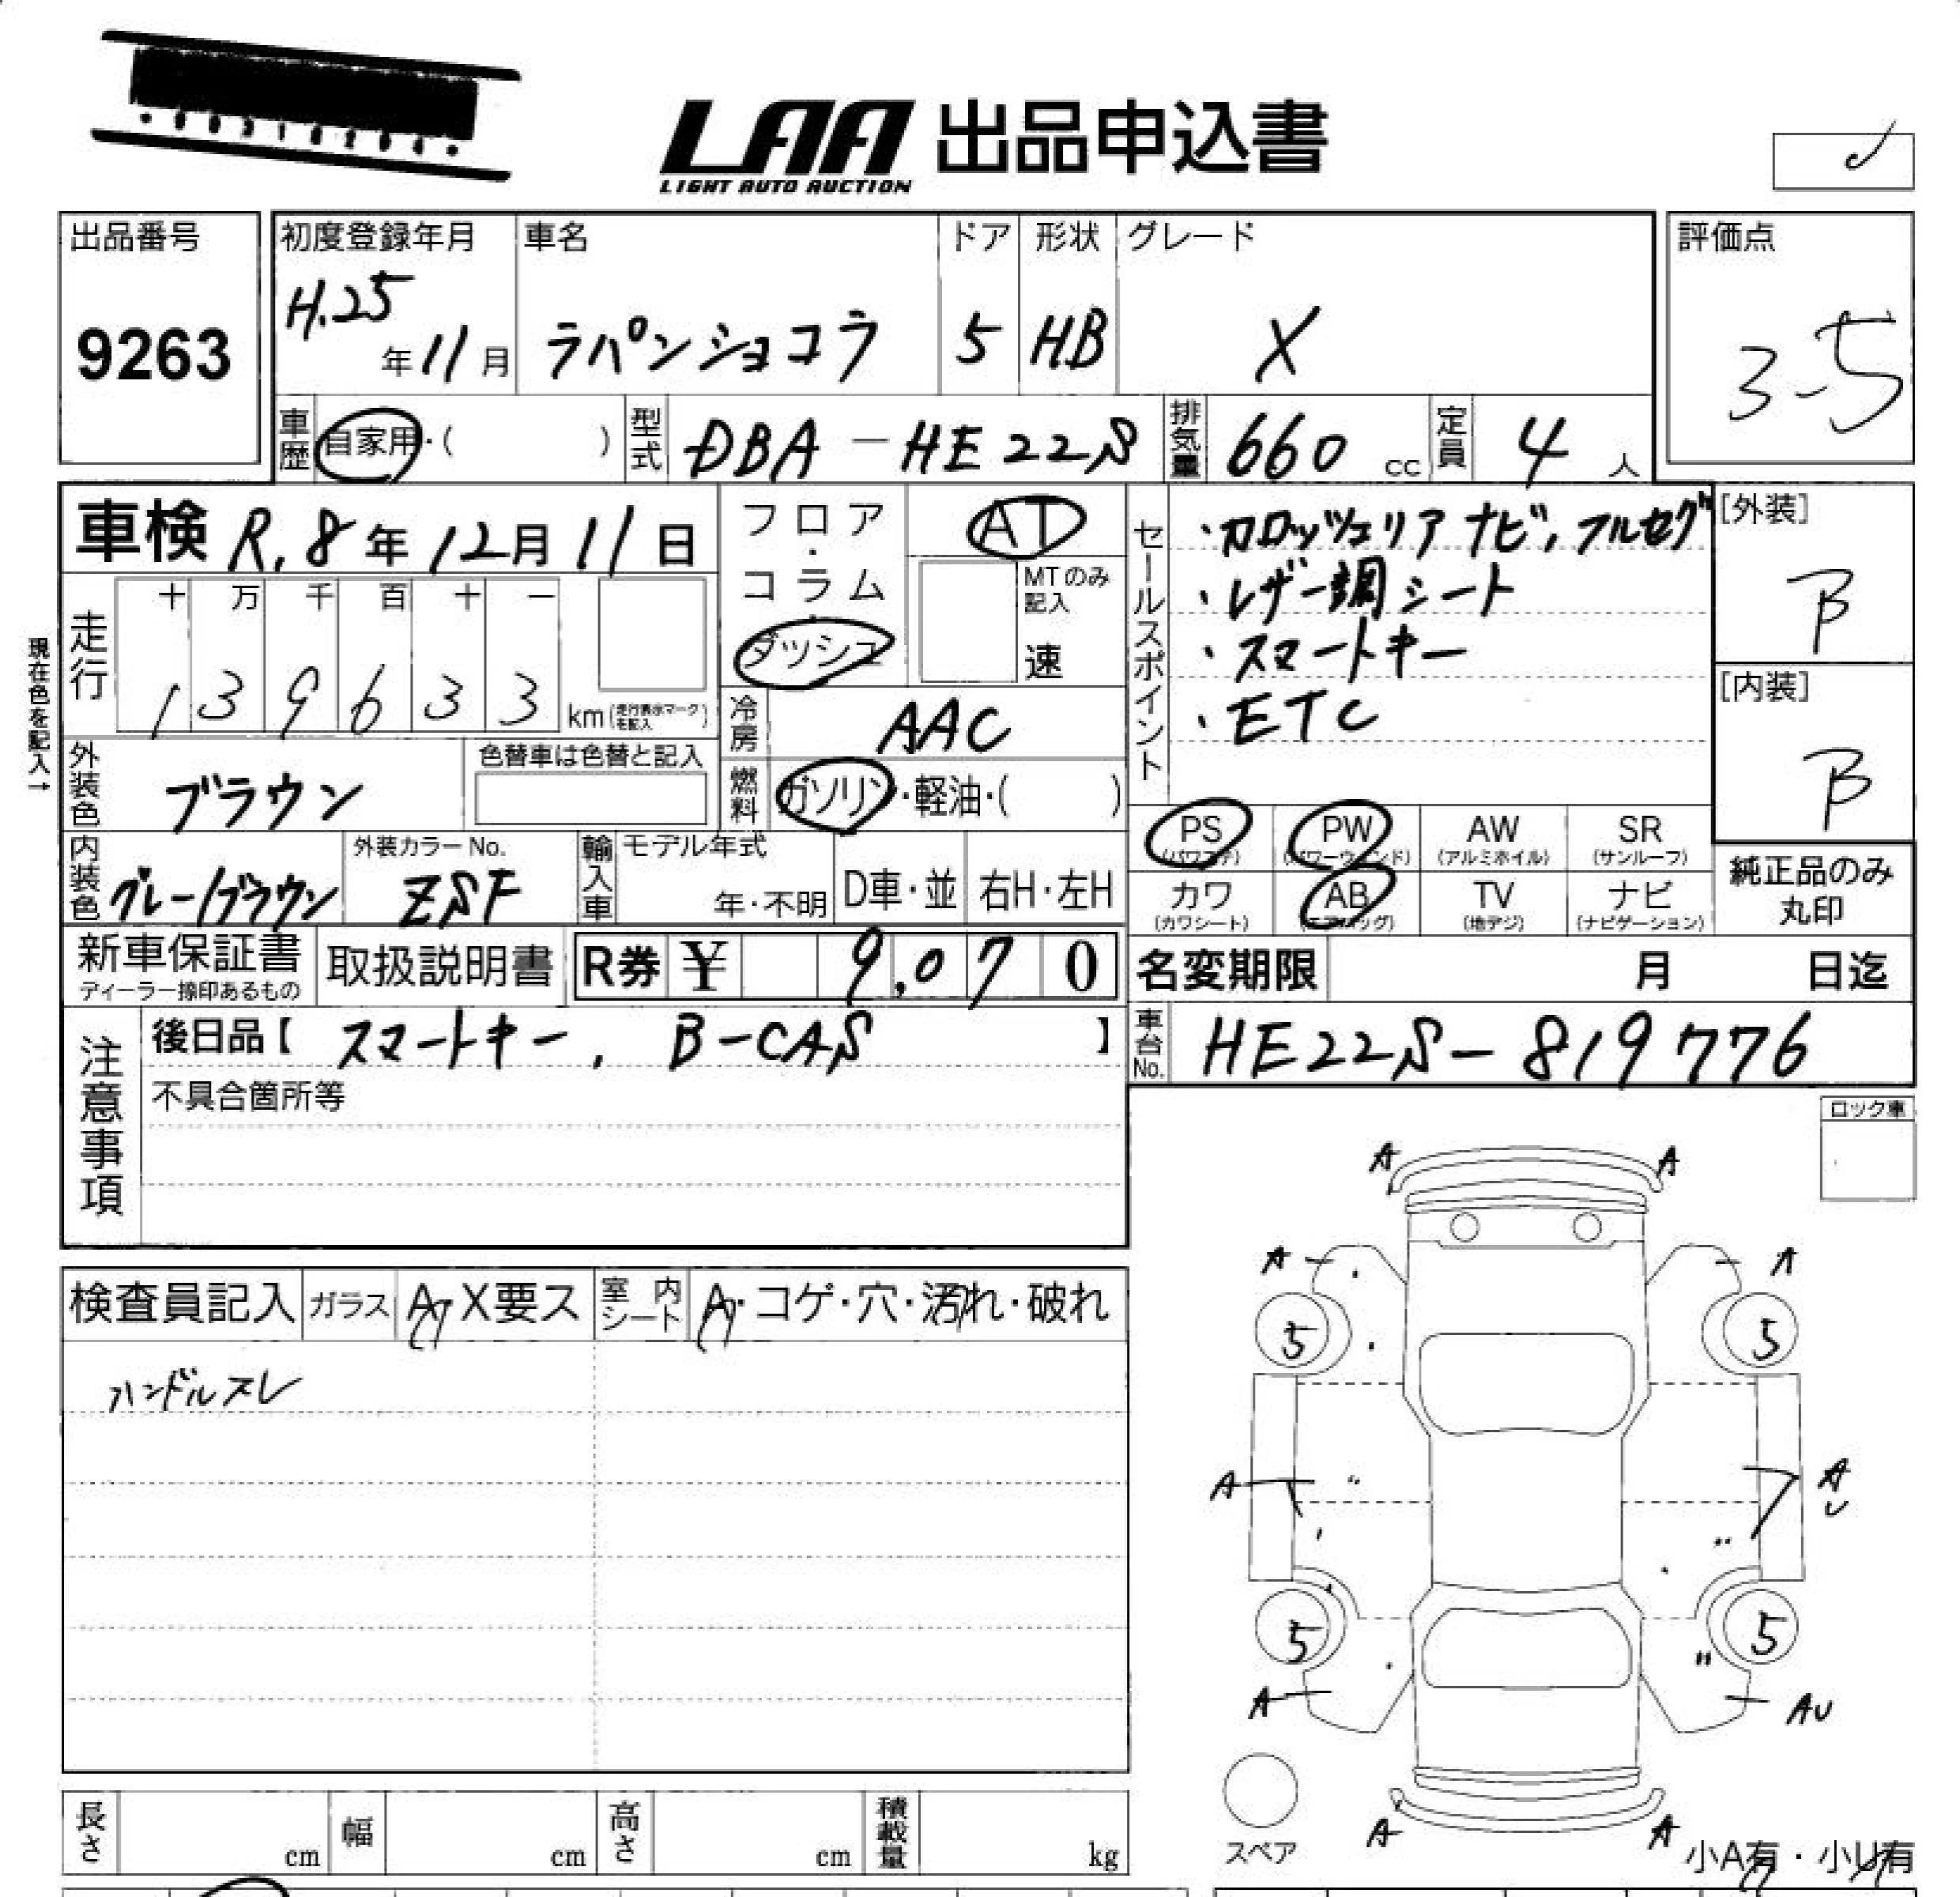 LAA 出品申込書
LIGHT AUTO AUCTION
出品番号
9263
初度登録年月
H.25年11月
車名
ラパンショコラ
ドア
5
形状
HB
グレード
X
評価点
3-5
車歴 自家用・( )
型式 DBA-HE22S
排気量 660 cc
定員 4 人
車検 R.8年12月11日
フロア・コラム・ダッシュ
AT
MTのみ記入
速
セールスポイント
・カロッツェリア ナビ, フルセグ
・レザー調シート
・スマートキー
・ETC
[外装]
B
[内装]
B
現在色を記入→
走行
十 万 千 百 十 一
1 3 9 6 3 3 km (走行表示マークを記入)
冷房 AAC
外装色 ブラウン
色替車は色替と記入
燃料 ガソリン・軽油・( )
内装色 グレー/ブラウン
外装カラーNo.
ZSF
輸入車 モデル年式
年・不明 D車・並 右H・左H
PS (パワステ) PW (パワーウィンド) AW (アルミホイル) SR (サンルーフ)
カワ (カワシート) AB (エアバッグ) TV (地デジ) ナビ (ナビゲーション)
純正品のみ
丸印
新車保証書
ディーラー捺印あるもの
取扱説明書
R券 ¥ 9,070
名変期限 月 日迄
注意事項
後日品【 スマートキー, B-CAS 】
不具合箇所等
車台No. HE22S-819776
ロック車
検査員記入 ガラス A・X要ス 室内シート A・コゲ・穴・汚れ・破れ
ハンドルスレ
A A
A A
5 5
A A U
5 5
A AU
A A
スペア
小A有・小U有
長さ cm 幅 cm 高さ cm 積載量 kg